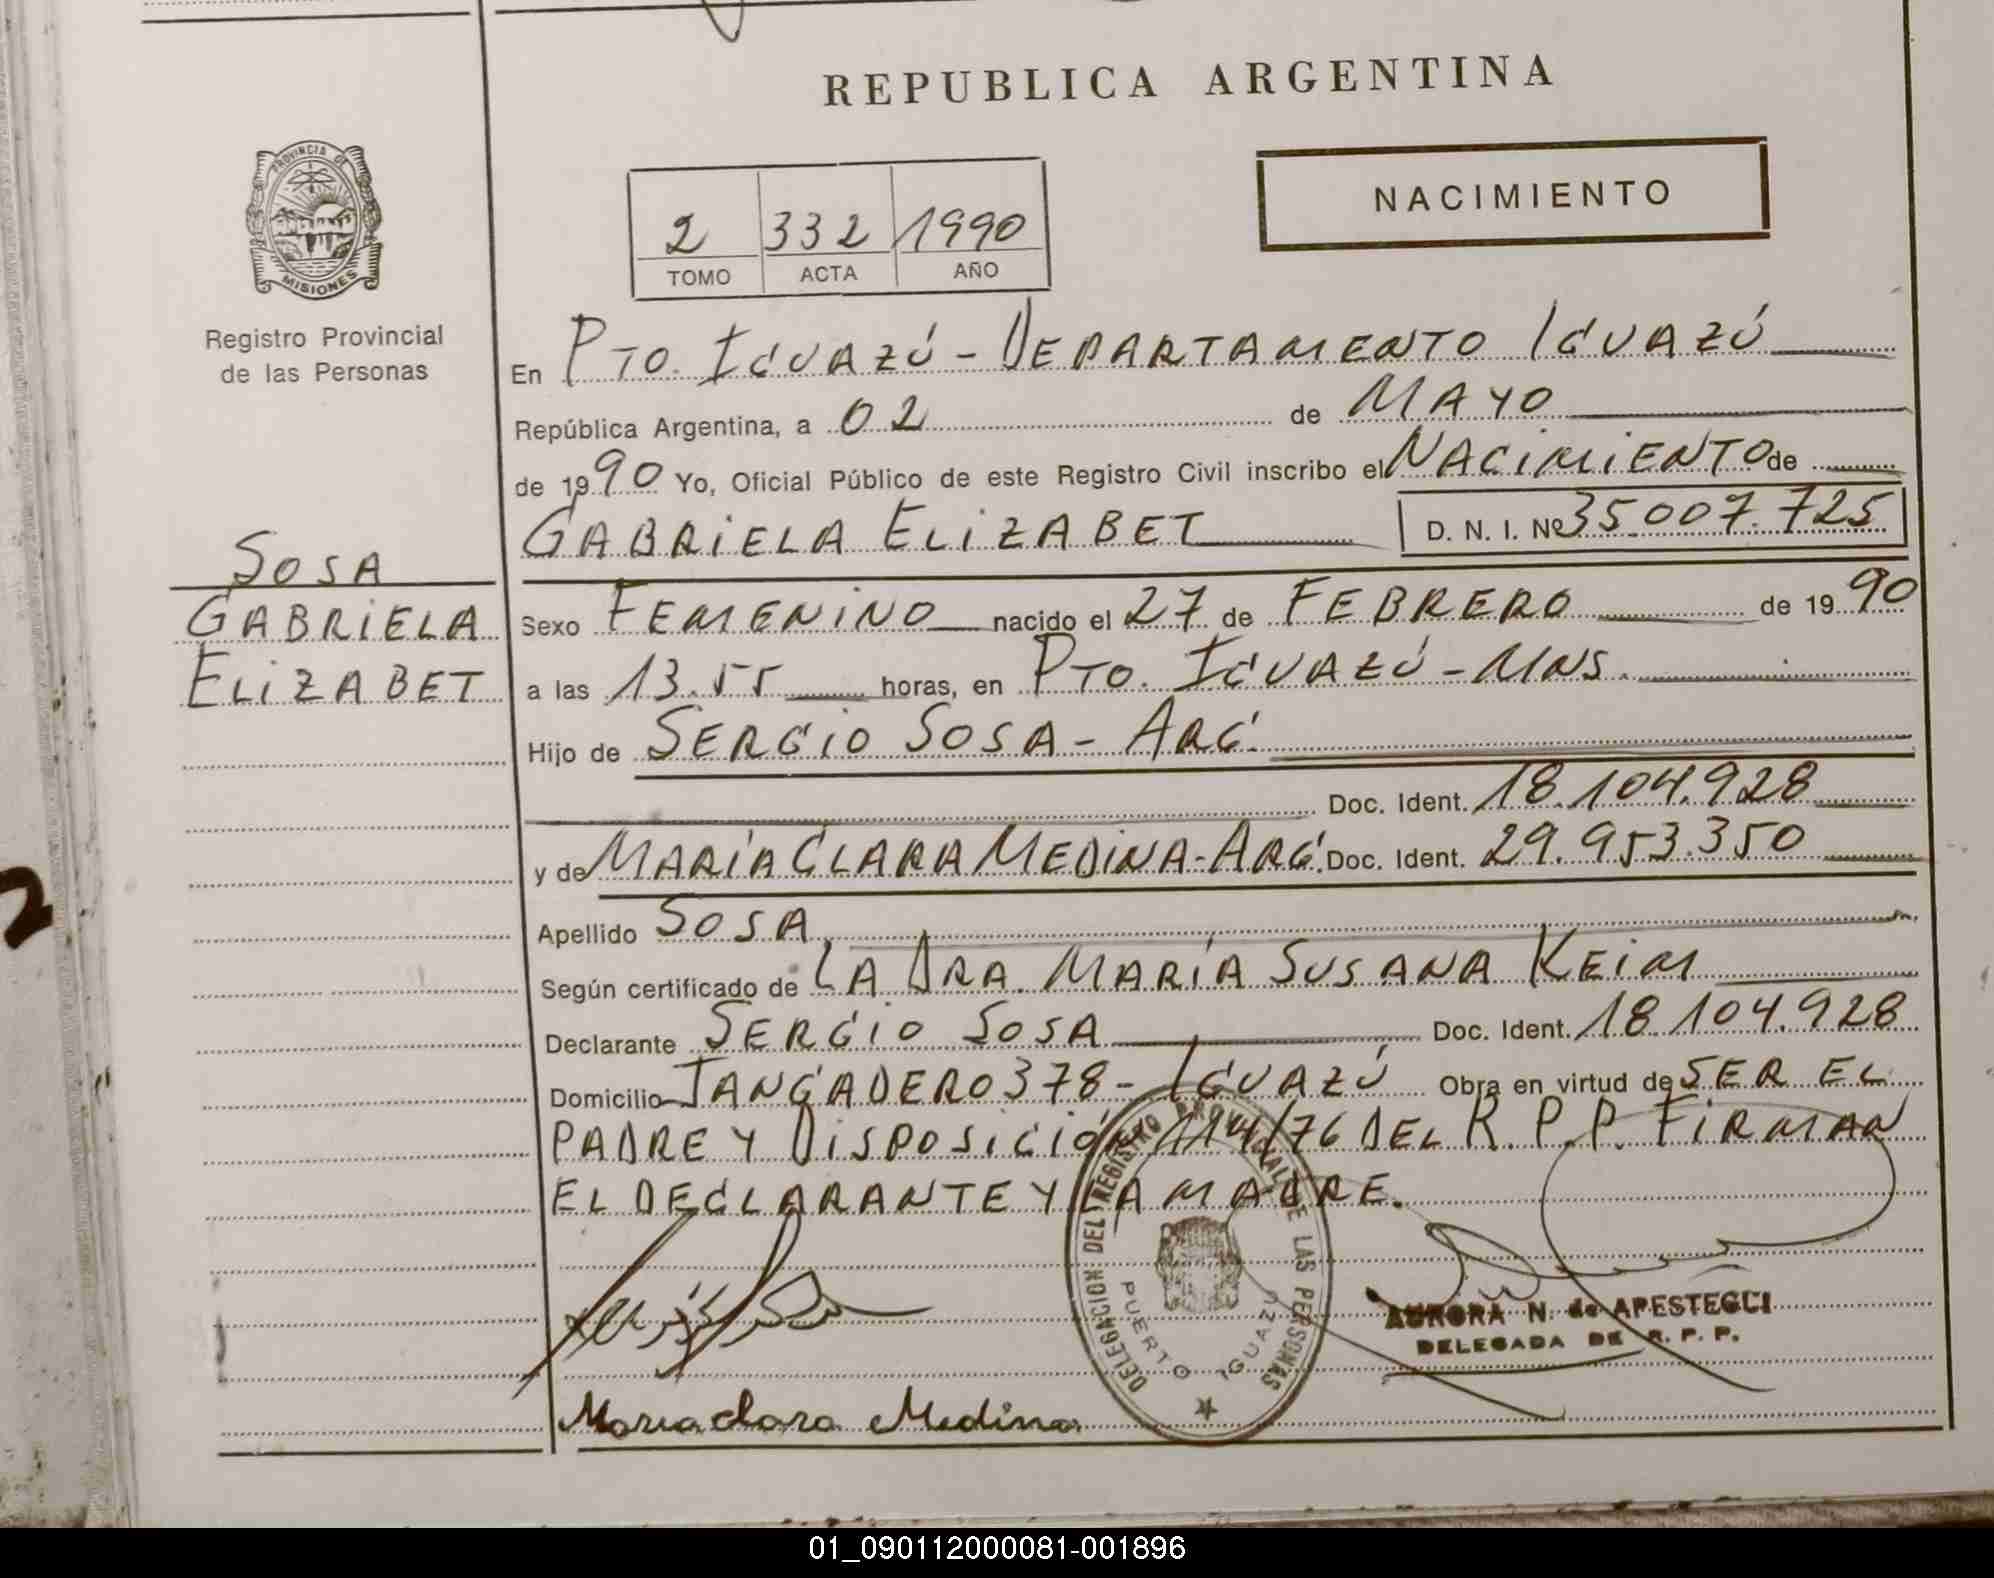 REPUBLICA ARGENTINA
PROVINCIA DE
MISIONES
Registro Provincial
de las Personas
NACIMIENTO
2 332 1990
TOMO ACTA AÑO
En PTO. IGUAZÚ - DEPARTAMENTO IGUAZÚ
República Argentina, a 02 de MAYO
de 1990 Yo, Oficial Público de este Registro Civil inscribo el NACIMIENTO de
GABRIELA ELIZABET D. N. I. Nº 35.007.725
SOSA
GABRIELA
ELIZABET
Sexo FEMENINO nacido el 27 de FEBRERO de 1990
a las 13.55 horas, en PTO. IGUAZÚ - MNS.
Hijo de SERGIO SOSA - ARG.
Doc. Ident. 18.104.928
y de MARÍA CLARA MEDINA - ARG. Doc. Ident. 29.953.350
Apellido SOSA
Según certificado de LA DRA. MARÍA SUSANA KEIM
Declarante SERGIO SOSA Doc. Ident. 18.104.928
Domicilio TANGADERO 378 - IGUAZÚ Obra en virtud de SER EL
PADRE Y DISPOSICIÓN 114/76 DEL R.P.P. FIRMAN
EL DECLARANTE Y LA MADRE.
DELEGACION DEL REGISTRO PROVINCIAL DE LAS PERSONAS
PUERTO IGUAZU
AURORA N. de APESTEGUI
DELEGADA DE R. P. P.
Maria clara Medina
2
01_090112000081-001896